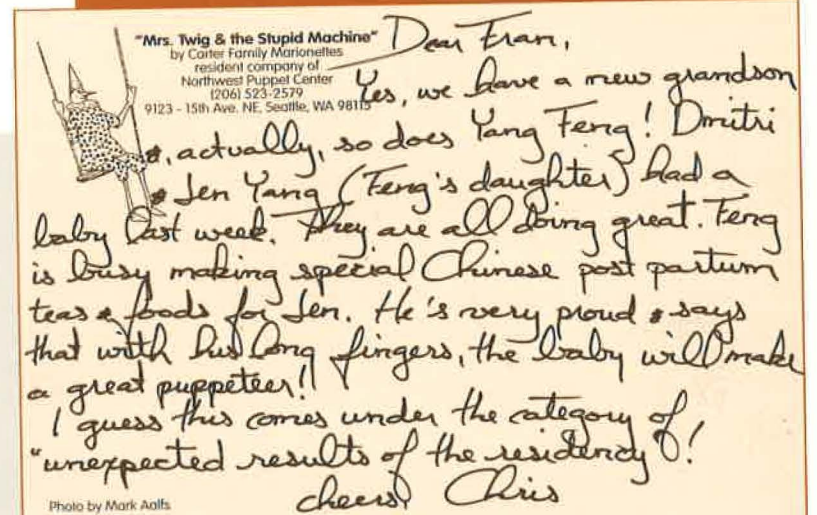 "Mrs. Twig & the Stupid Machine"
by Carter Family Marionettes
resident company of
Northwest Puppet Center
(206) 523-2579
9123 - 15th Ave. NE, Seattle, WA 98115
Dear Fran,
Yes, we have a new grandson
&, actually, so does Yang Feng! Dmitri
& Jen Yang (Feng's daughter) had a
baby last week. They are all doing great. Feng
is busy making special Chinese post partum
teas & foods for Jen. He's very proud & says
that with his long fingers, the baby will make
a great puppeteer!!
I guess this comes under the category of
"unexpected results of the residency"!
cheers, Chris
Photo by Mark Aalfs